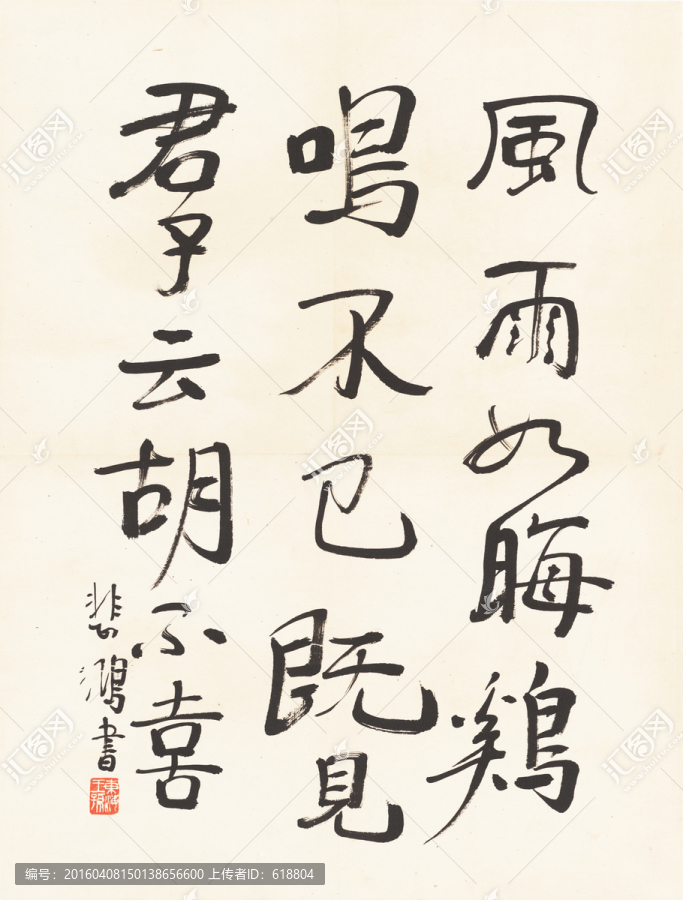 風雨如晦鷄
鳴不已既見
君子云胡不喜
悲鴻書
编号：20160408150138656600 上传者ID：618804